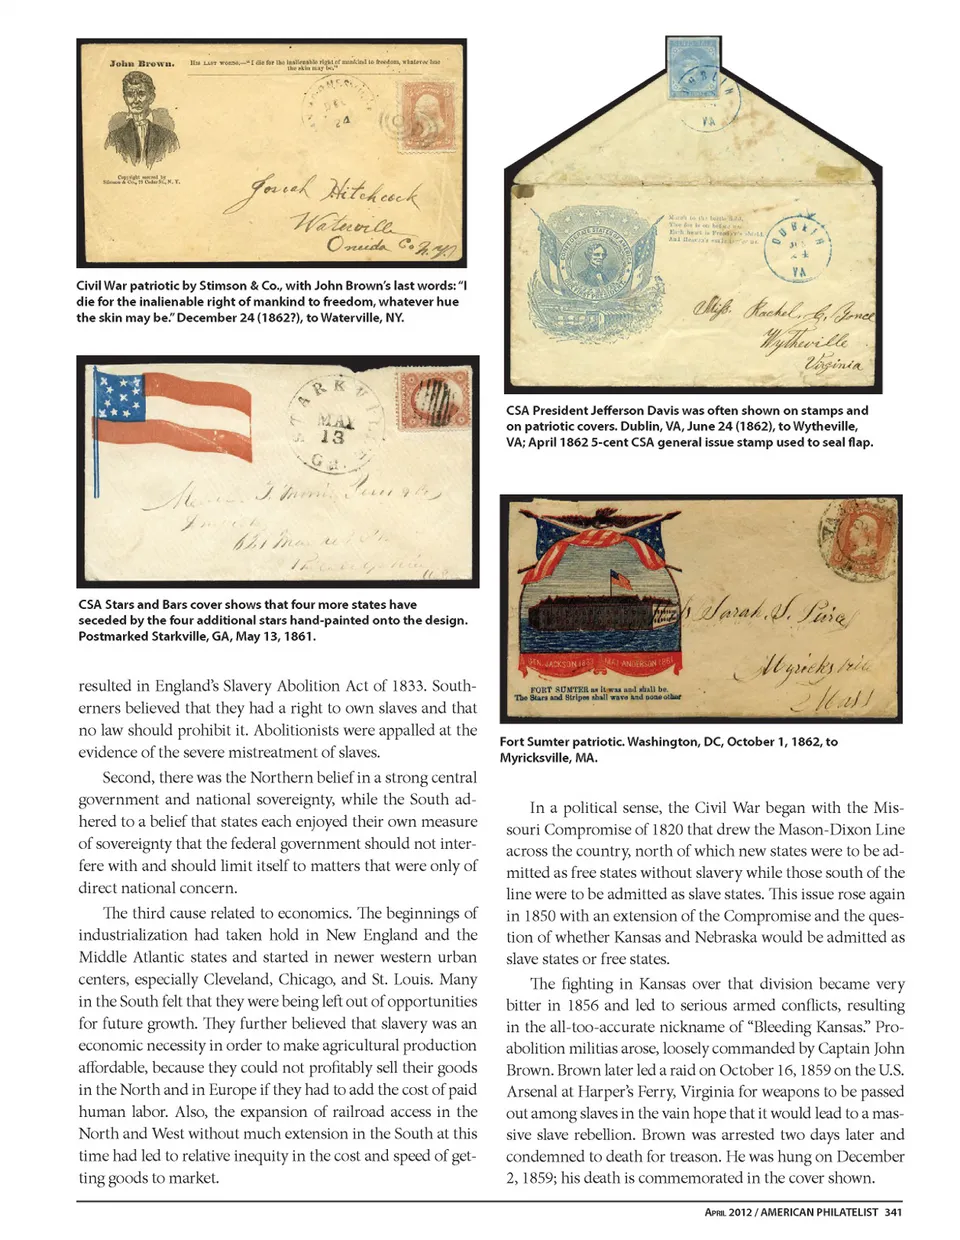 John Brown.
His last words:—"I die for the inalienable right of mankind to freedom, whatever hue
the skin may be."
DEC
24
Copyright secured by
Stimson & Co., 72 Cedar St., N. Y.
Josiah Hitchcock
Waterville
Oneida Co N.Y.
Civil War patriotic by Stimson & Co., with John Brown's last words: "I
die for the inalienable right of mankind to freedom, whatever hue
the skin may be." December 24 (1862?), to Waterville, NY.
STARKVILLE
MAY
13
Ga.
CSA Stars and Bars cover shows that four more states have
seceded by the four additional stars hand-painted onto the design.
Postmarked Starkville, GA, May 13, 1861.
resulted in England's Slavery Abolition Act of 1833. South-
erners believed that they had a right to own slaves and that
no law should prohibit it. Abolitionists were appalled at the
evidence of the severe mistreatment of slaves.
Second, there was the Northern belief in a strong central
government and national sovereignty, while the South ad-
hered to a belief that states each enjoyed their own measure
of sovereignty that the federal government should not inter-
fere with and should limit itself to matters that were only of
direct national concern.
The third cause related to economics. The beginnings of
industrialization had taken hold in New England and the
Middle Atlantic states and started in newer western urban
centers, especially Cleveland, Chicago, and St. Louis. Many
in the South felt that they were being left out of opportunities
for future growth. They further believed that slavery was an
economic necessity in order to make agricultural production
affordable, because they could not profitably sell their goods
in the North and in Europe if they had to add the cost of paid
human labor. Also, the expansion of railroad access in the
North and West without much extension in the South at this
time had led to relative inequity in the cost and speed of get-
ting goods to market.
DUBLIN
VA
CONFEDERATE STATES OF AMERICA
DUBLIN
VA
Miss. Rachel
Wytheville
Virginia
CSA President Jefferson Davis was often shown on stamps and
on patriotic covers. Dublin, VA, June 24 (1862), to Wytheville,
VA; April 1862 5-cent CSA general issue stamp used to seal flap.
GEN. JACKSON 1832 MAJ. ANDERSON 1861
FORT SUMTER as it was and shall be.
The Stars and Stripes shall wave and none other
Sarah S.
Myricksville
Mass
Fort Sumter patriotic. Washington, DC, October 1, 1862, to
Myricksville, MA.
In a political sense, the Civil War began with the Mis-
souri Compromise of 1820 that drew the Mason-Dixon Line
across the country, north of which new states were to be ad-
mitted as free states without slavery while those south of the
line were to be admitted as slave states. This issue rose again
in 1850 with an extension of the Compromise and the ques-
tion of whether Kansas and Nebraska would be admitted as
slave states or free states.
The fighting in Kansas over that division became very
bitter in 1856 and led to serious armed conflicts, resulting
in the all-too-accurate nickname of "Bleeding Kansas." Pro-
abolition militias arose, loosely commanded by Captain John
Brown. Brown later led a raid on October 16, 1859 on the U.S.
Arsenal at Harper's Ferry, Virginia for weapons to be passed
out among slaves in the vain hope that it would lead to a mas-
sive slave rebellion. Brown was arrested two days later and
condemned to death for treason. He was hung on December
2, 1859; his death is commemorated in the cover shown.
April 2012 / AMERICAN PHILATELIST 341